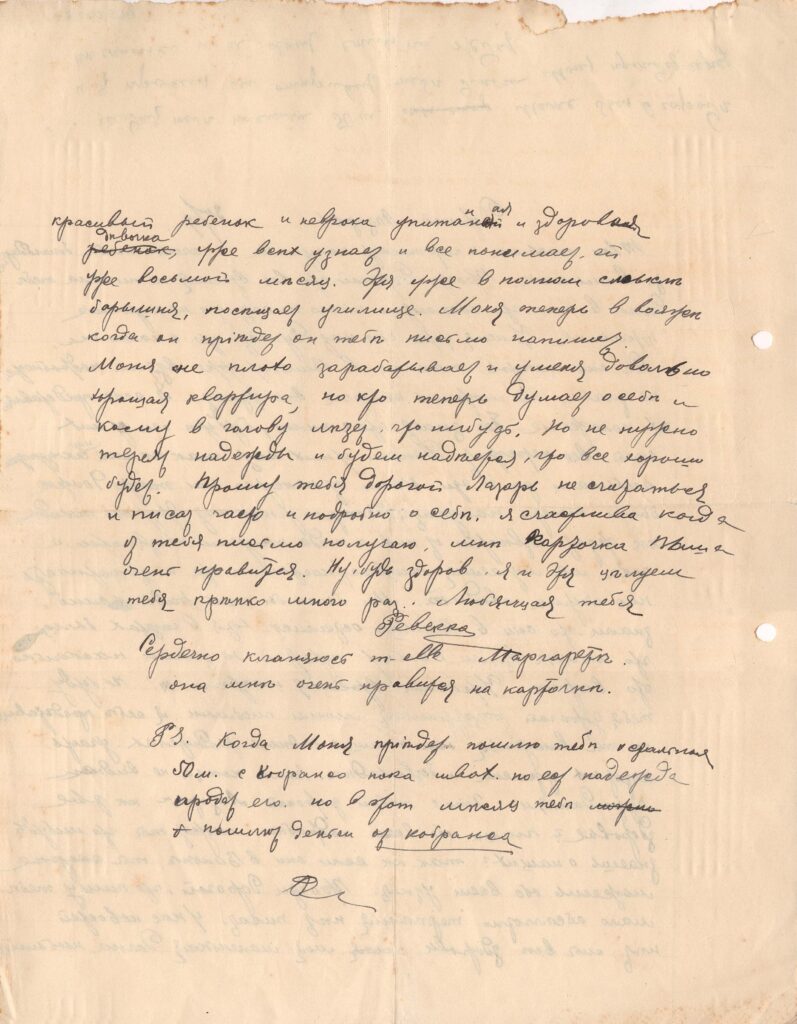 красивый ребенок и неврока упитанная и здоровая
ребенок, дѣвочка уже всѣх узнает и все понимает, ей
уже восьмой мѣсяц. Эля уже в полном смыслѣ
барышня, посѣщает училище. Моня теперь в вояжѣ
когда он пріѣдет он тебѣ письмо напишет.
Моня не плохо зарабатывает и у меня довольно
хорошая квартира, но кто теперь думает о себѣ и
кому в голову лѣзет что нибудь. Но не нужно
терят надежды и будем надѣется, что все хорошо
будет. Прошу тебя дорогой Лазарь не
и писат часто и подробно о себѣ. я счастлива когда
от тебя письмо получаю, мнѣ карточка
очень нравится. Ну, будь здоров. я и Эля цѣлуем
тебя крѣпко много раз. Любящая тебя
Ревекка
Сердечно кланяюсь m-elle Маргаретѣ.
она мнѣ очень нравится на карточкѣ.
PS. Когда Моня пріѣдет пошлю тебѣ остальныя
50 м. с Кобрансо пока швах. но ест надежда
его. но в этот мѣсяц тебѣ можно
пошлют деньги от кобранса